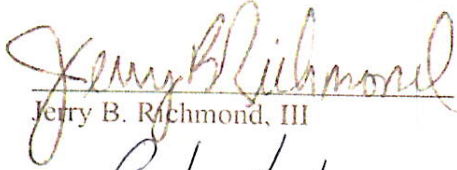 Jerry B Richmond
Jerry B. Richmond, III